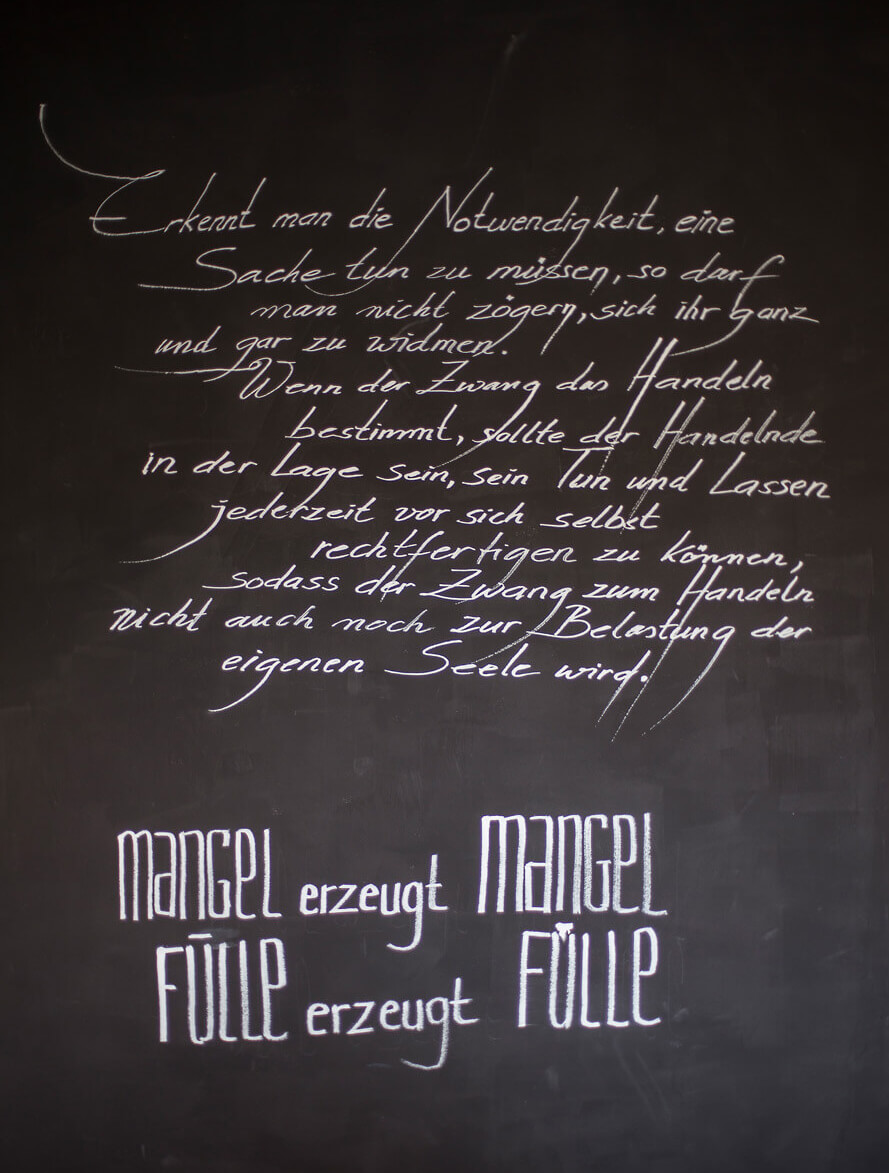 Erkennt man die Notwendigkeit, eine
Sache tun zu müssen, so darf
man nicht zögern, sich ihr ganz
und gar zu widmen.
Wenn der Zwang das Handeln
bestimmt, sollte der Handelnde
in der Lage sein, sein Tun und Lassen
jederzeit vor sich selbst
rechtfertigen zu können,
sodass der Zwang zum Handeln
nicht auch noch zur Belastung der
eigenen Seele wird.
MANGEL erzeugt MANGEL
FÜLLE erzeugt FÜLLE